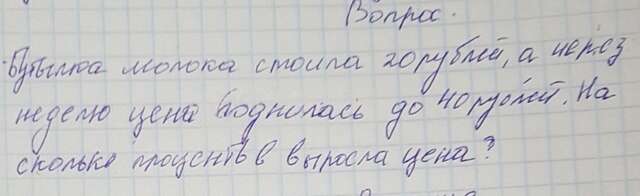 Вопрос.
Бутылка молока стоила 20 рублей, а через
неделю цена поднялась до 40 рублей. На
сколько процентов выросла цена?